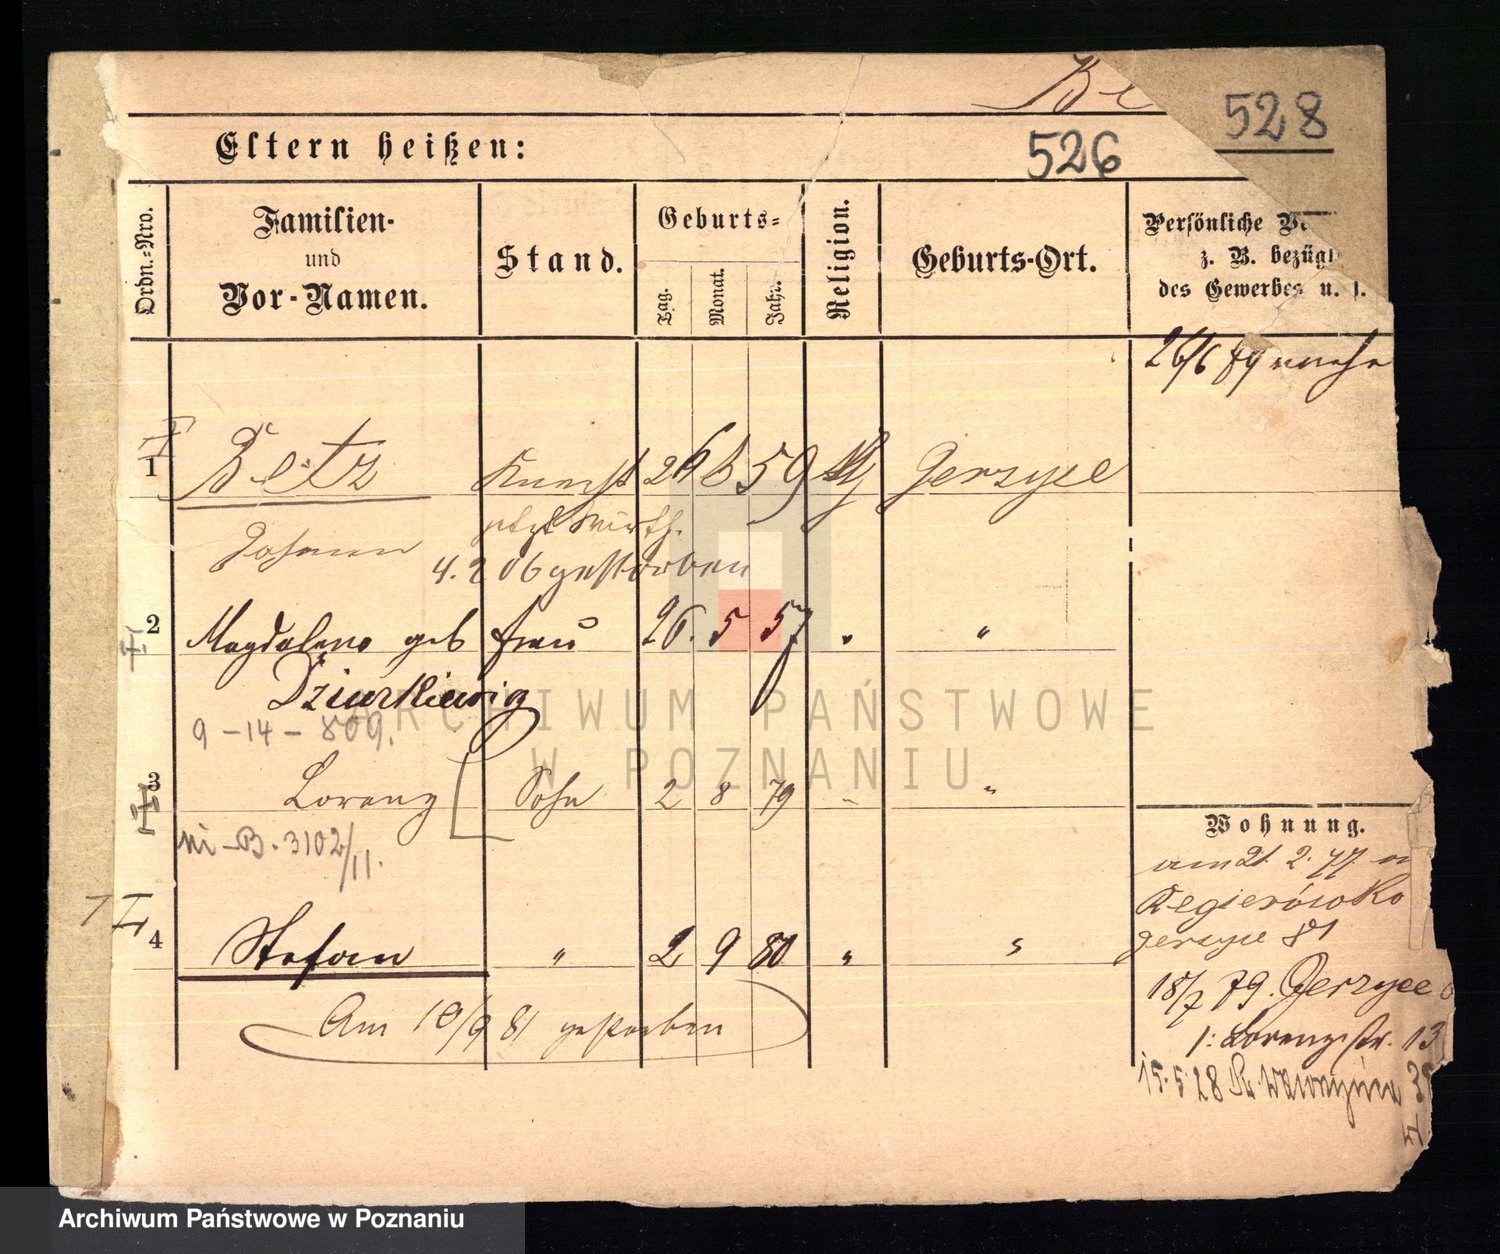 Be
528
Eltern heißen:
526
Ordn.-Nro.
Familien- und Vor-Namen.
Stand.
Geburts-
Tag.
Monat.
Jahr.
Religion.
Geburts-Ort.
Persönliche
z. B. bezügl
des Gewerbes u. s.
26/6 79
I
1 Betz Knecht 26 6 59 Gerzyce
Wirth.
Johann 4. 2 06 gestorben
2 Magdalena geb Frau 26. 5 57 „ „
Dziurkiewicz
9 - 14 - 809.
3 Lorenz Sohn 2 8 79 „ „
B. 3102/11.
Wohnung.
am 21. 2. 77
Regierówko
Gerzyce 81
II
4 Stefan „ 2 9 80 „ „
18/7 79. Gerzyce
Am 10/9 81 gestorben
1: Lorenzstr. 13
15. 5. 28 Wawrzyńca
ARCHIWUM PAŃSTWOWE
W POZNANIU
Archiwum Państwowe w Poznaniu